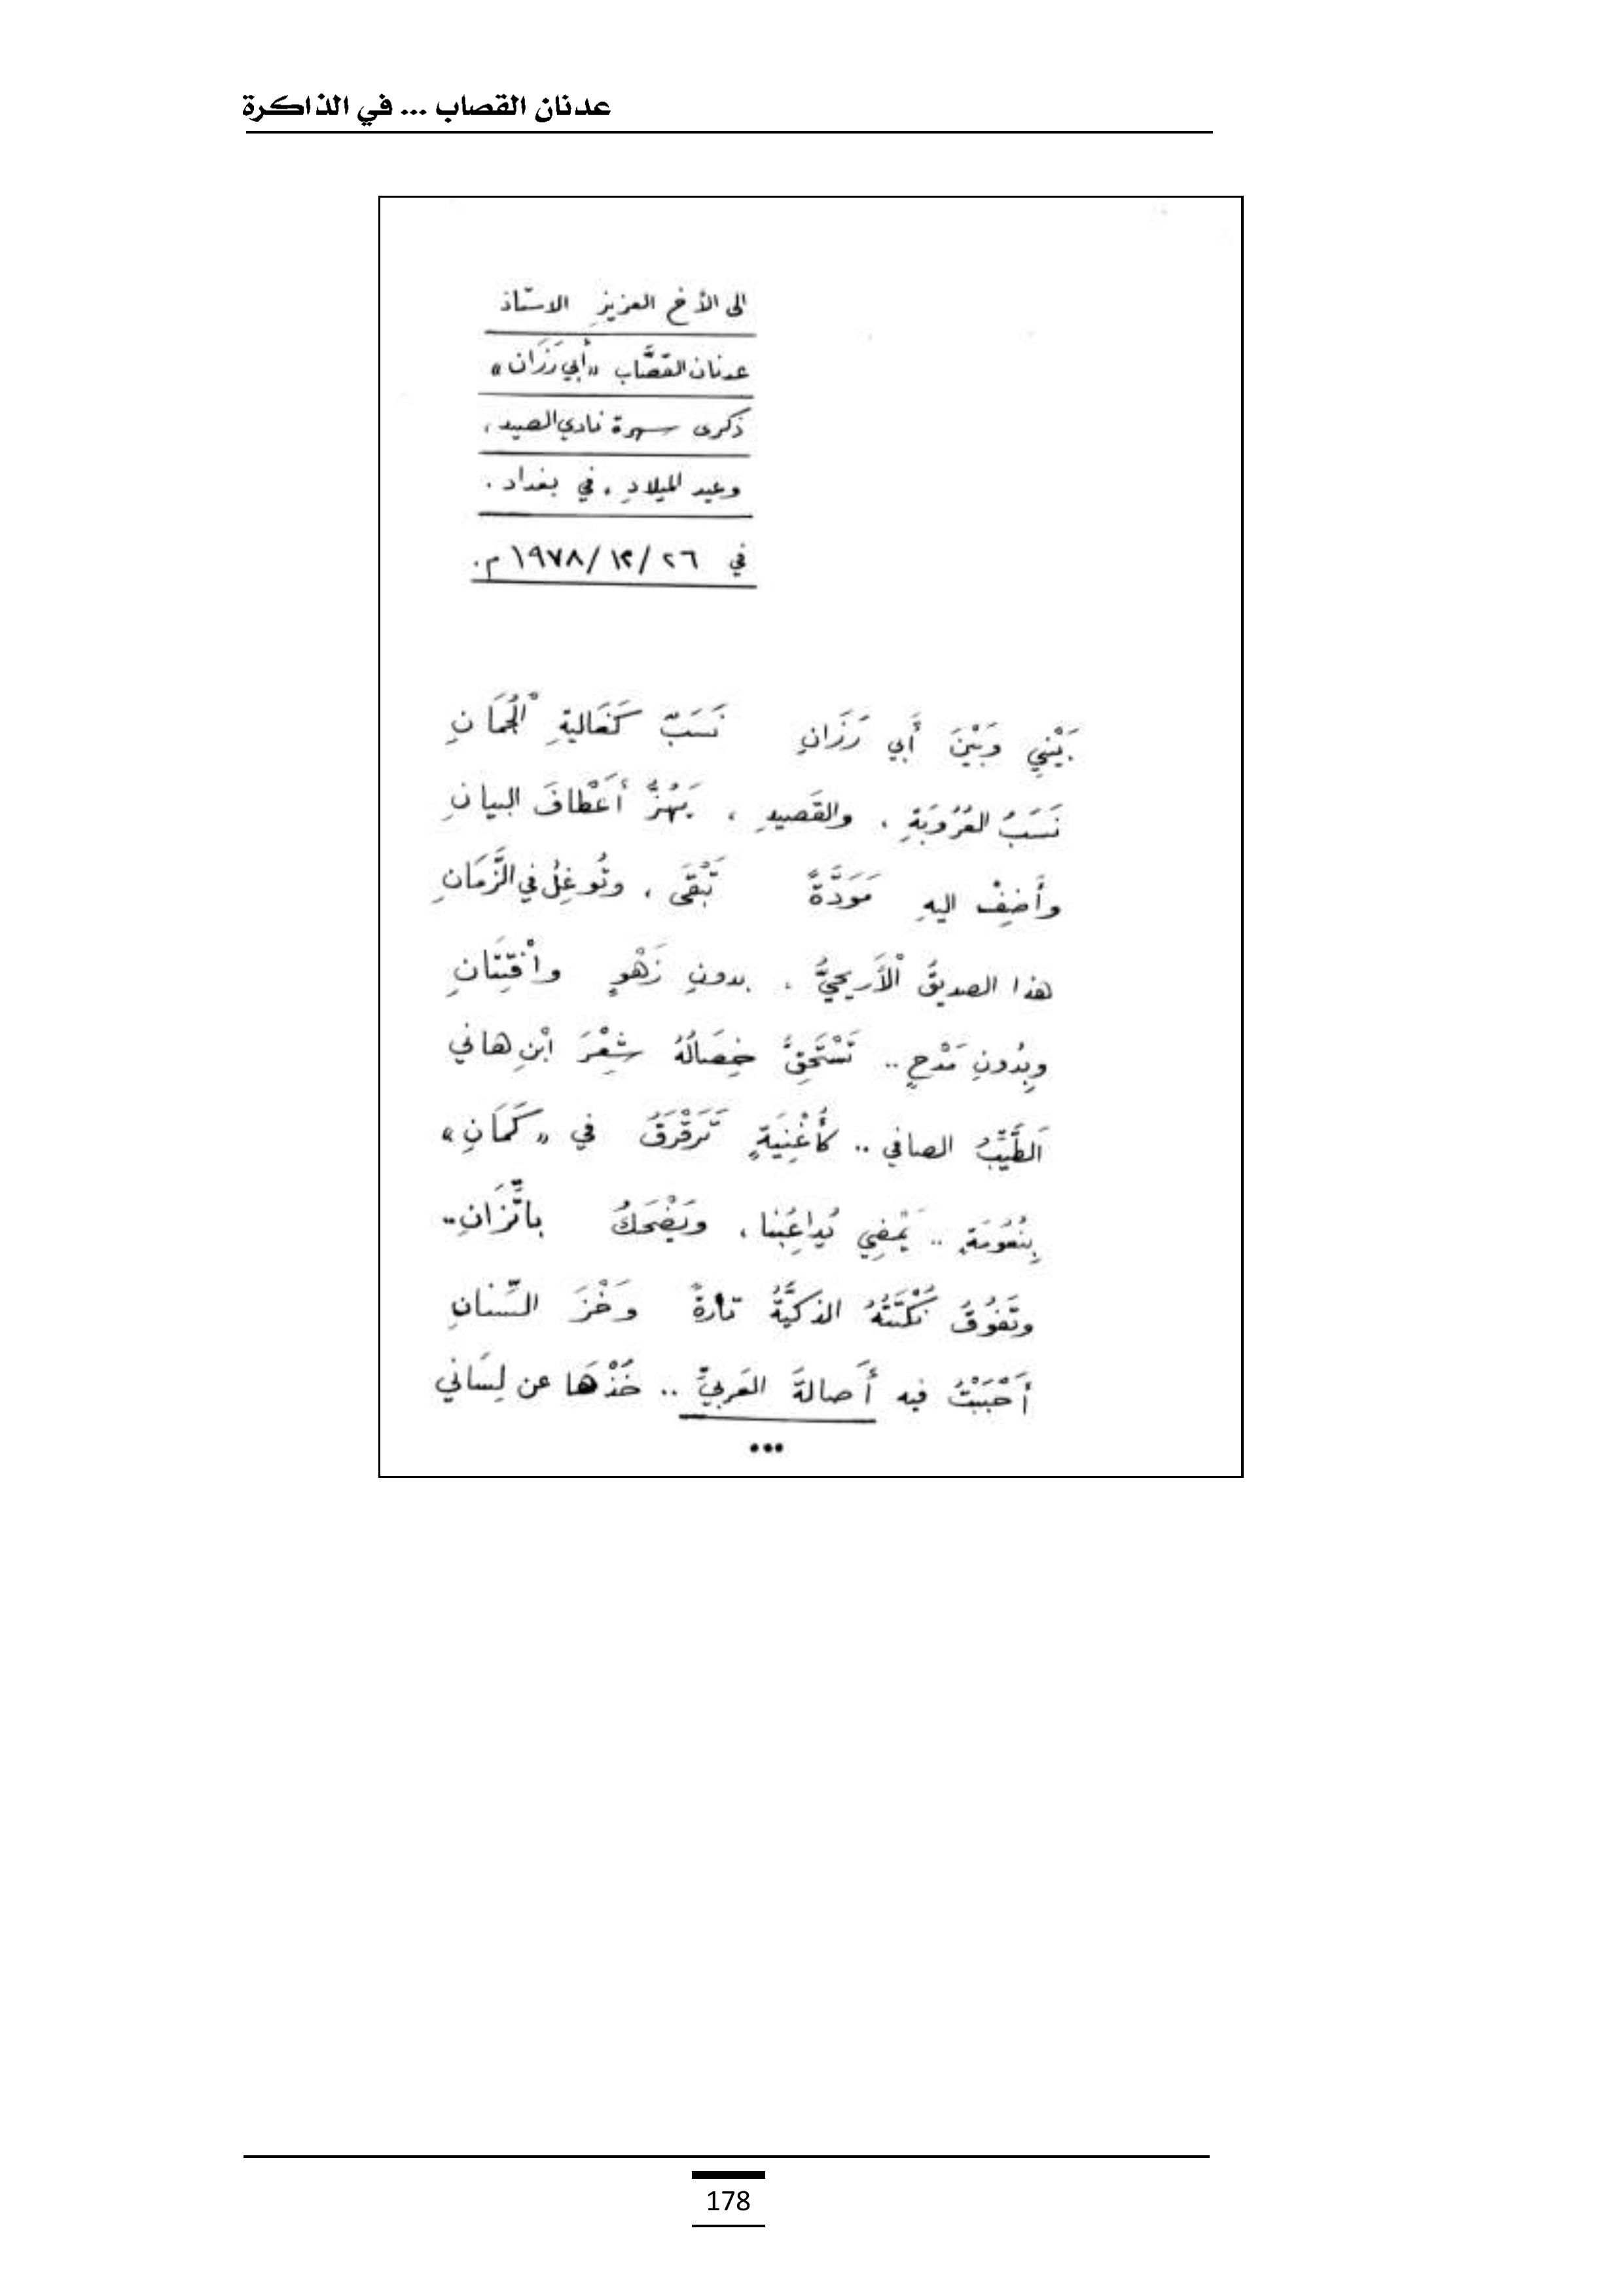 عدنان القصاب ... في الذاكرة
الى الأخ العزيزِ الاستاذ
عدنان القصَّاب «أَبي رَزَان»
ذكرى سهرة نادي الصيد ،
وعيد الميلادِ ، في بغداد .
في ٢٦ /١٢ /١٩٧٨ م.
بَيْنِي وَبَيْنَ أَبي رَزَانِ نَسَبٌ كَغَاليةِ ٱلْجُمَانِ
نَسَبُ العُرُوبَةِ ، والقَصيدِ ، يَهُزُّ أَعْطافَ البيانِ
وأَضِفْ اليهِ مَوَدَّةً تَبْقَى ، وتُوغِلُ في الزَّمَانِ
هذا الصديقُ ٱلْأَريحيُّ ، بدونِ زَهْوٍ وافْتِتَانِ
وبِدُونِ مَدْحٍ .. تَسْتَحِقُّ خِصَالُهُ شِعْرَ ابْنِ هاني
اَلطَّيِّبُ الصافي .. كأُغْنِيَةٍ تَرَقْرَقُ في «كَمَانِ»
بِنُعُومَةٍ .. يَمْضِي يُداعِبُنا ، ويَضْحَكُ باتِّزَانِ..
وتَفُوقُ نُكْتَتُهُ الذكيَّةُ تارةً وَخْزَ السِّنانِ
أَحْبَبْتُ فيه أَصالةَ العَربيِّ .. خُذْهَا عن لِسَاني
•••
178